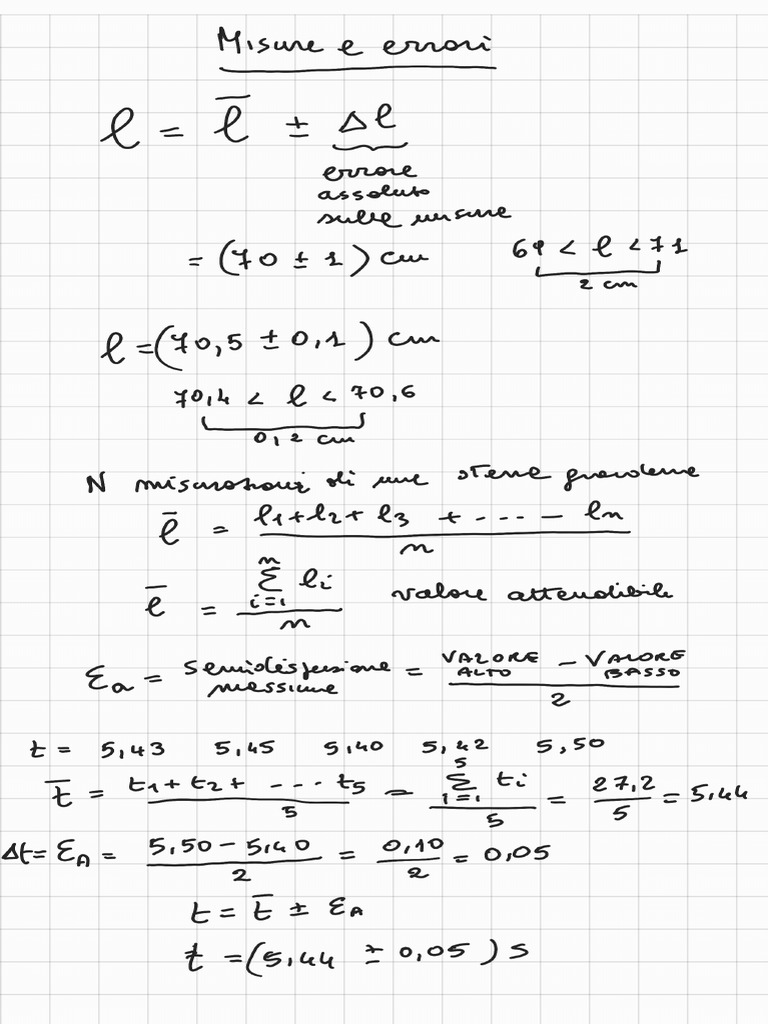 Misure e errori
ℓ = ℓ̅ ± Δℓ
errore
assoluto
sulla misura
= (70 ± 1) cm 69 < ℓ < 71
2 cm
ℓ = (70,5 ± 0,1) cm
70,4 < ℓ < 70,6
0,2 cm
N misurazioni di una stessa grandezza
ℓ̅ = ℓ1+ℓ2+ ℓ3 + - - - - ℓn / n
ℓ̅ = ∑ i=1 n ℓi / n valore attendibile
Ea = semidispersione massima = VALORE ALTO - VALORE BASSO / 2
t = 5,43 5,45 5,40 5,42 5,50
t̅ = t1+t2+ - - - t5 / 5 = ∑ i=1 5 ti / 5 = 27,2 / 5 = 5,44
Δt= EA = 5,50-5,40 / 2 = 0,10 / 2 = 0,05
t = t̅ ± EA
t = (5,44 ± 0,05) s